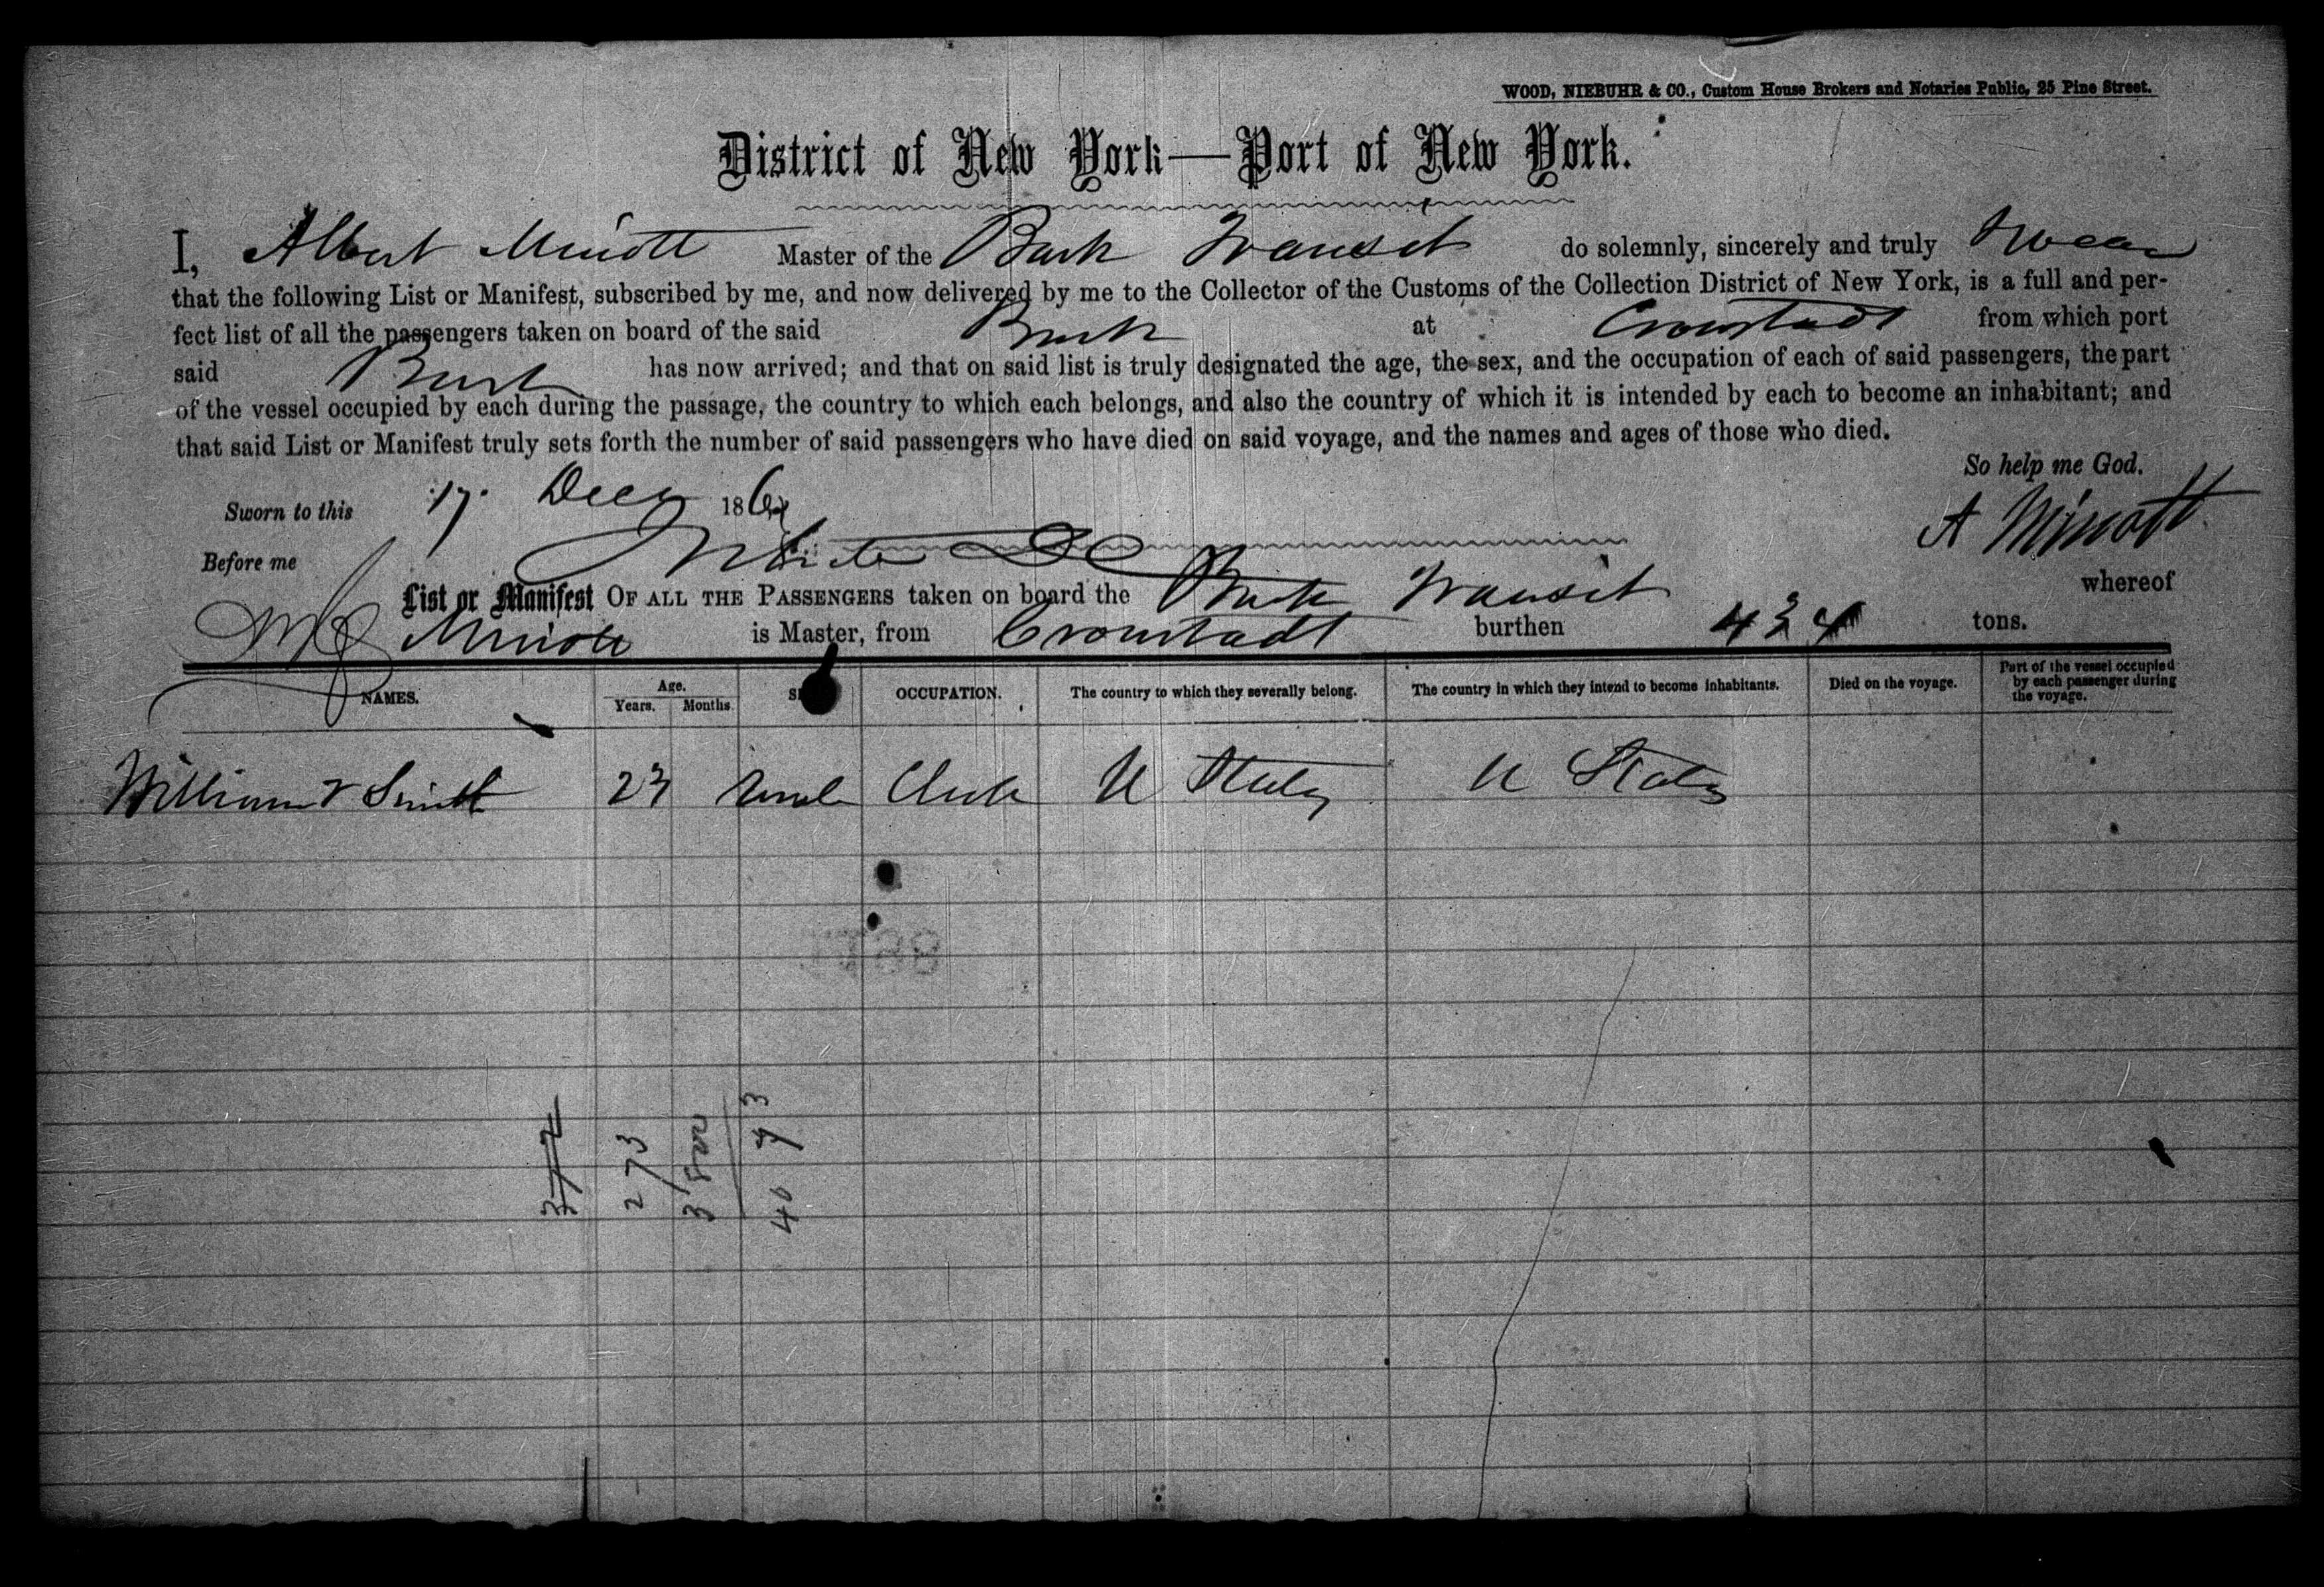 WOOD, NIEBUHR & CO., Custom House Brokers and Notaries Public, 25 Pine Street.
District of New York—Port of New York.
I, Albert Minott Master of the Bark Transit do solemnly, sincerely and truly swear
that the following List or Manifest, subscribed by me, and now delivered by me to the Collector of the Customs of the Collection District of New York, is a full and per-
fect list of all the passengers taken on board of the said Bark at Cronstadt from which port
said Bark has now arrived; and that on said list is truly designated the age, the sex, and the occupation of each of said passengers, the part
of the vessel occupied by each during the passage, the country to which each belongs, and also the country of which it is intended by each to become an inhabitant; and
that said List or Manifest truly sets forth the number of said passengers who have died on said voyage, and the names and ages of those who died.
So help me God.
Sworn to this 17. Decr 186
A Minott
Before me
List or Manifest OF ALL THE PASSENGERS taken on board the Bark Transit whereof
Minott is Master, from Cronstadt burthen 434 tons.
NAMES. Age. Years. Months. SEX OCCUPATION. The country to which they severally belong. The country in which they intend to become inhabitants. Died on the voyage. Part of the vessel occupied by each passenger during the voyage.
William Smith 23 male Clerk U States U States
273
4073